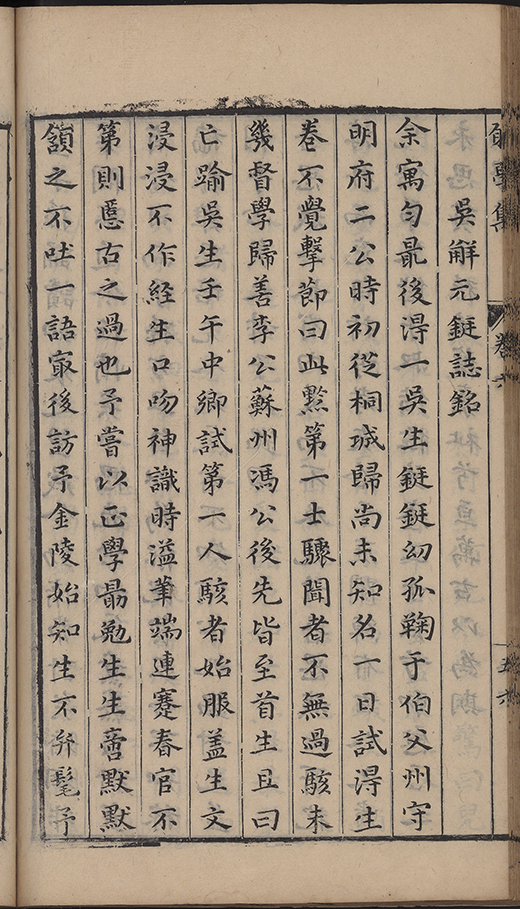 學集 卷六 五六
吳解元鋌誌銘
余寓勻最後得一吳生鋌鋌幼孤鞠于伯父州守
明府二公時初從桐城歸尚未知名一日試得生
卷不覺擊節曰此黟第一士驟聞者不無過駭未
幾督學歸善李公蘇州馮公後先皆至首生且曰
亡踰吳生壬午中鄉試第一人駭者始服盖生文
浸浸不作經生口吻神識時溢筆端連蹇春官不
第則慝古之過也予嘗以正學最勉生生啻默默
頷之不吐一語寂後訪予金陵始知生不弁髦予